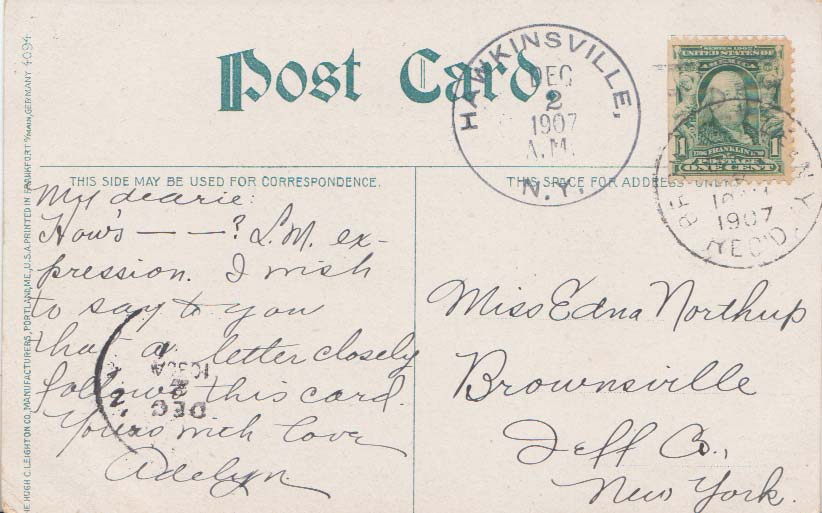 Post Card.
HAWKINSVILLE,
DEC
2
1907
A.M.
N.Y.
SERIES 1902
AMERICA
1 FRANKLIN 1
POSTAGE
ONE CENT
1907
REC'D
THIS SIDE MAY BE USED FOR CORRESPONDENCE.
THIS SPACE FOR ADDRESS ONLY.
My dearie:
How's — — —? L.M. ex-
pression. I wish
to say to you
that a letter closely
follows this card.
Yours with love
Adelyn.
DEC
2
Miss Edna Northup
Brownsville
Jeff Co.,
New York.
HUGH C. LEIGHTON CO., MANUFACTURERS, PORTLAND, ME., U.S.A. PRINTED IN FRANKFORT O/MAIN, GERMANY 4094